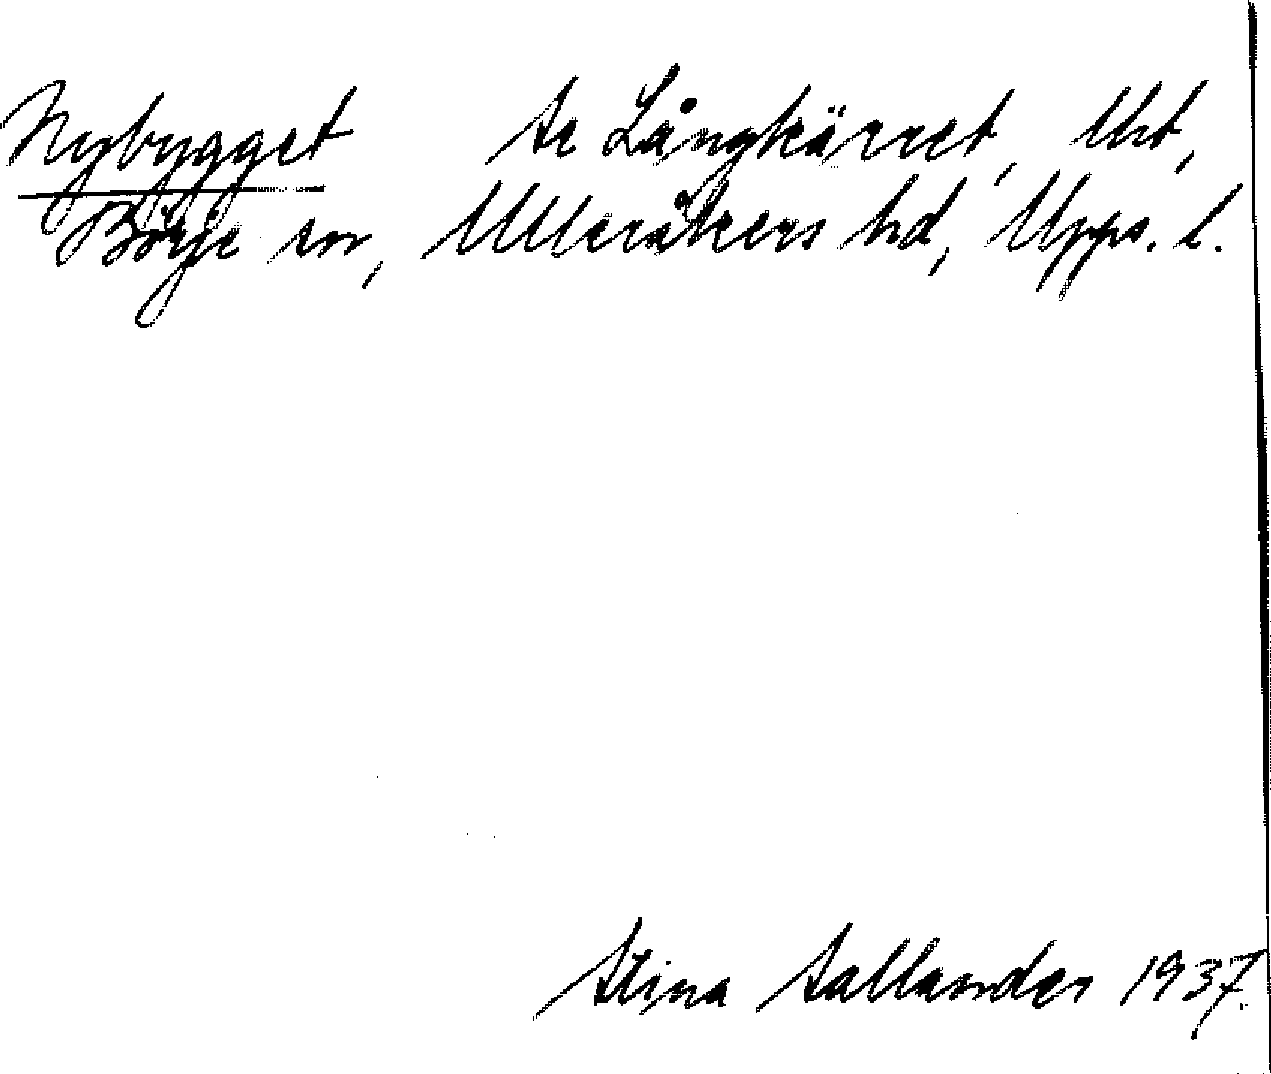 Nybygget Se Långkärret, Utt,
Börje sn, Ulleråkers hd, Upps. l.
Stina Sallander 1937.